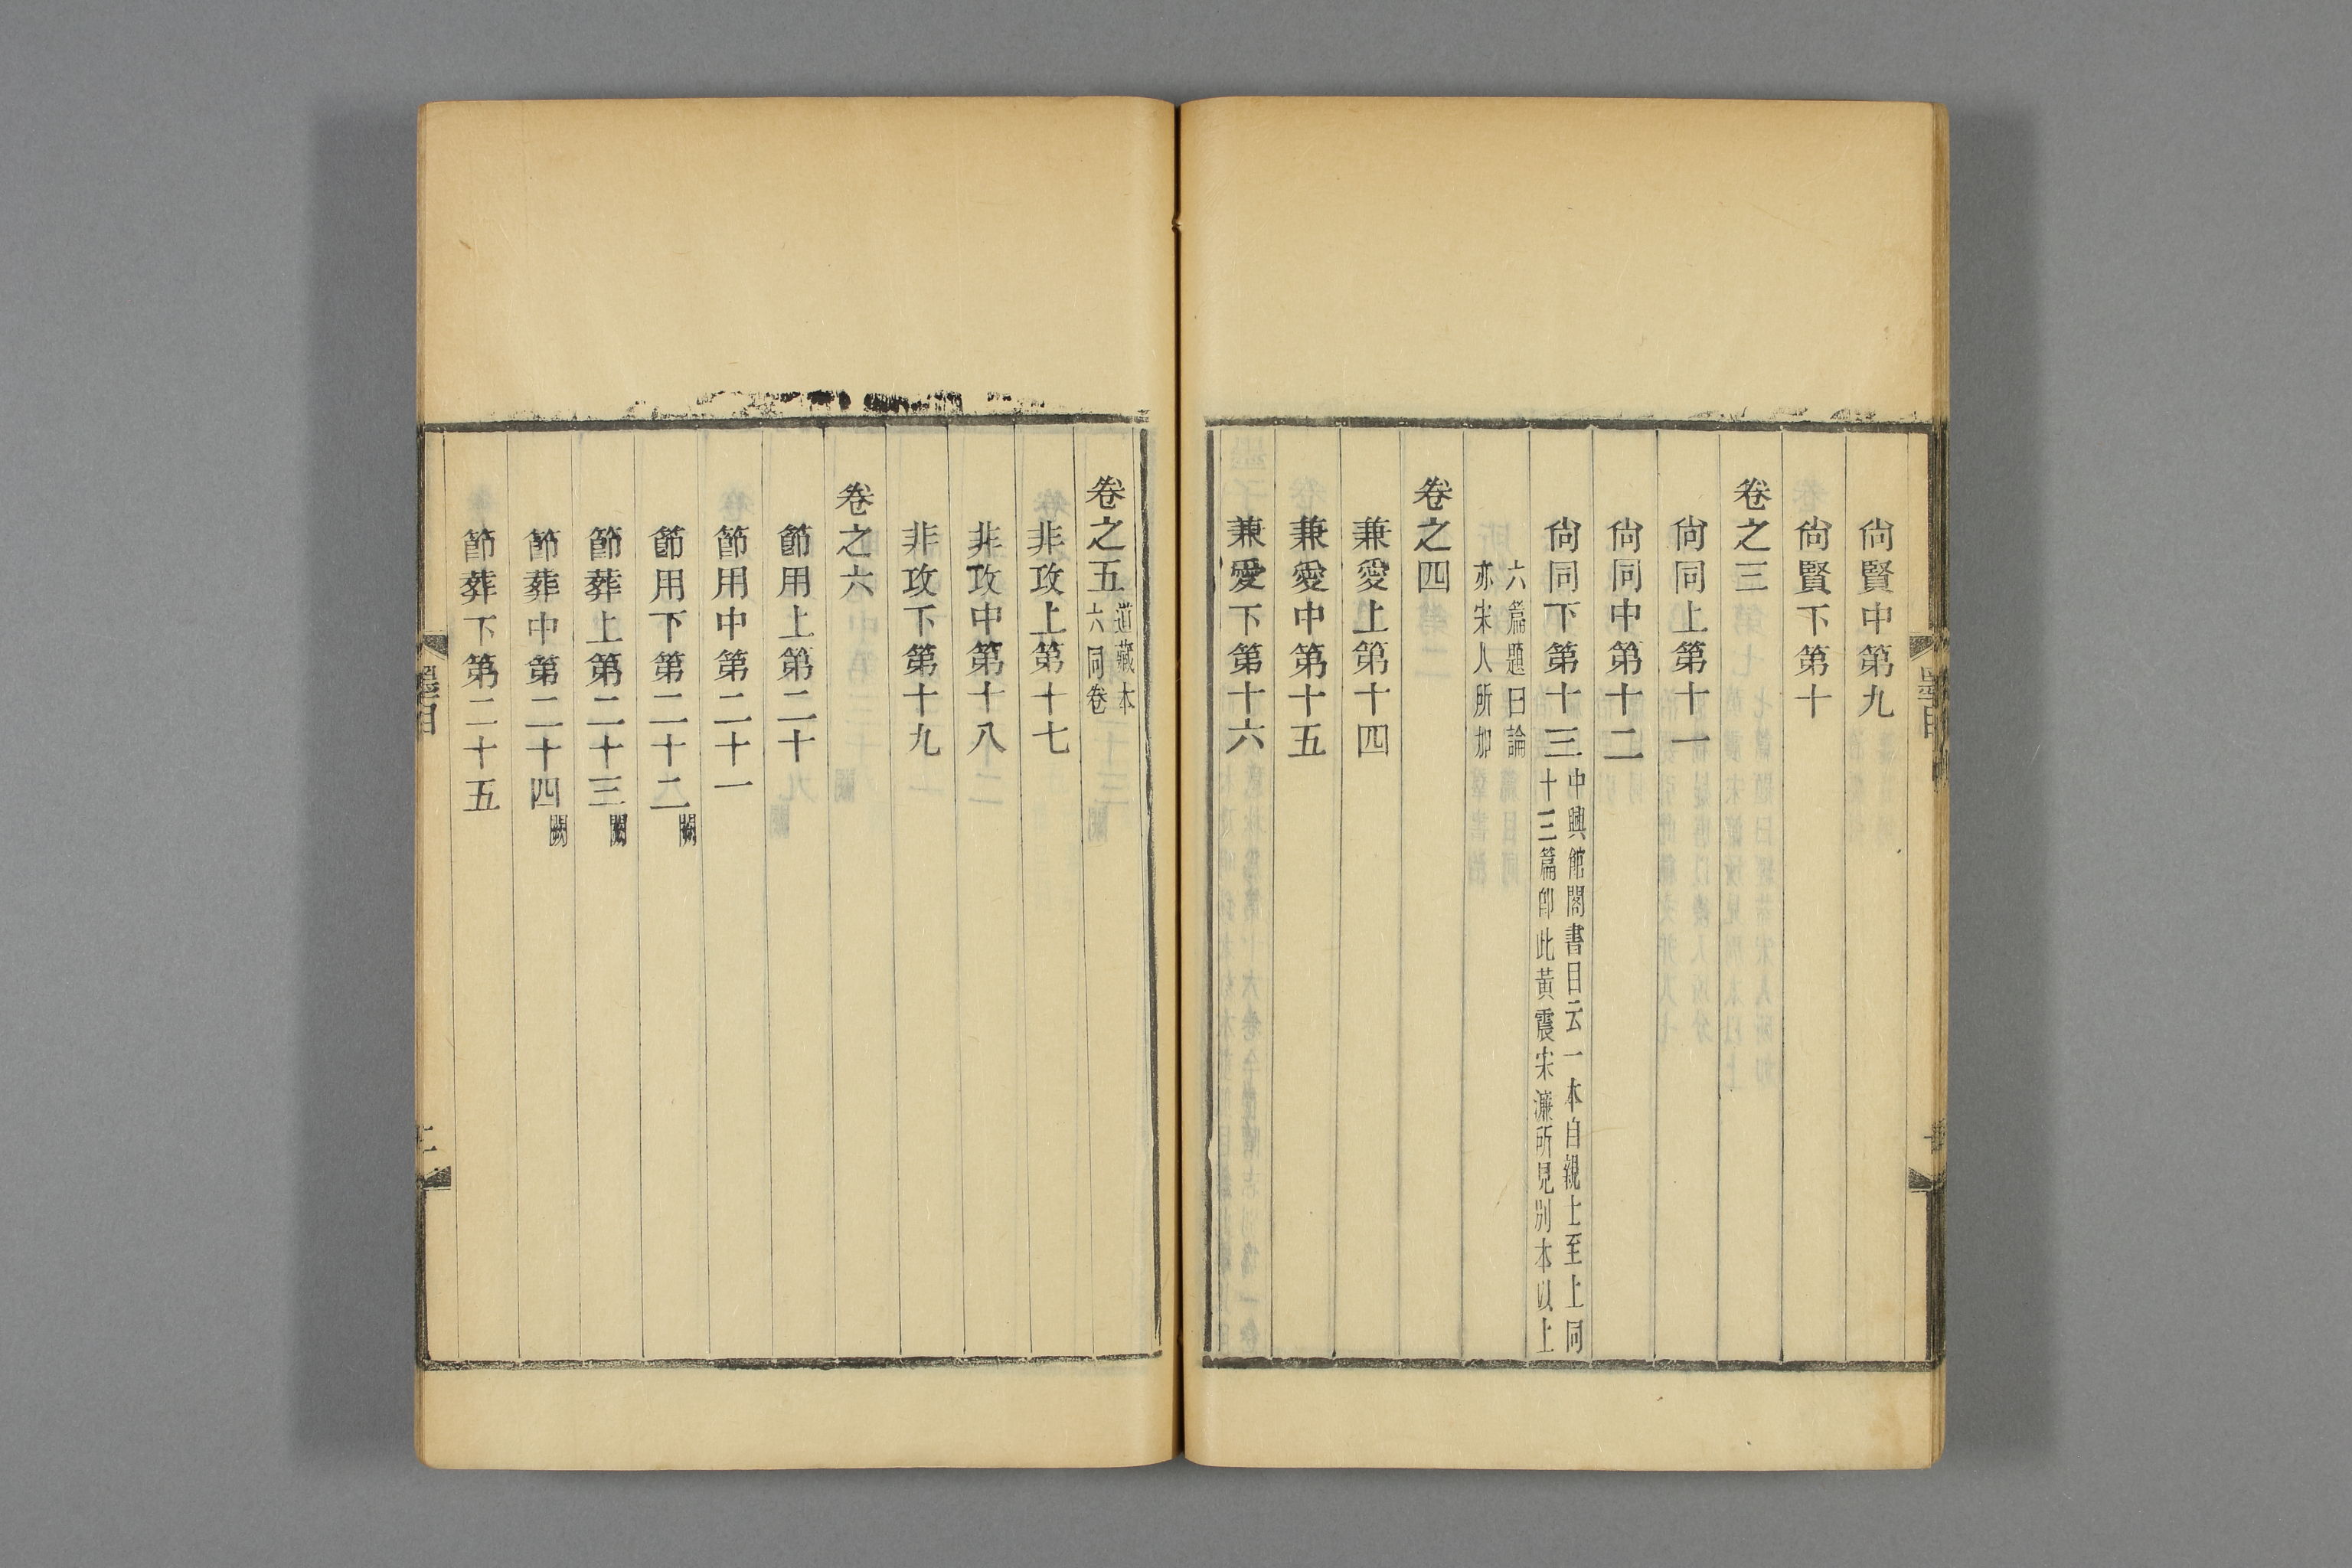 尙賢中第九
尙賢下第十
卷之三
尙同上第十一
尙同中第十二
尙同下第十三中興館閣書目云一本自親士至上同
十三篇卽此黃震宋濂所見別本以上
六篇題曰論
亦宋人所加
卷之四
兼愛上第十四
兼愛中第十五
兼愛下第十六
卷之五道藏本
六同卷
非攻上第十七
非攻中第十八
非攻下第十九
卷之六
節用上第二十
節用中第二十一
節用下第二十二闕
節葬上第二十三闕
節葬中第二十四闕
節葬下第二十五
墨目